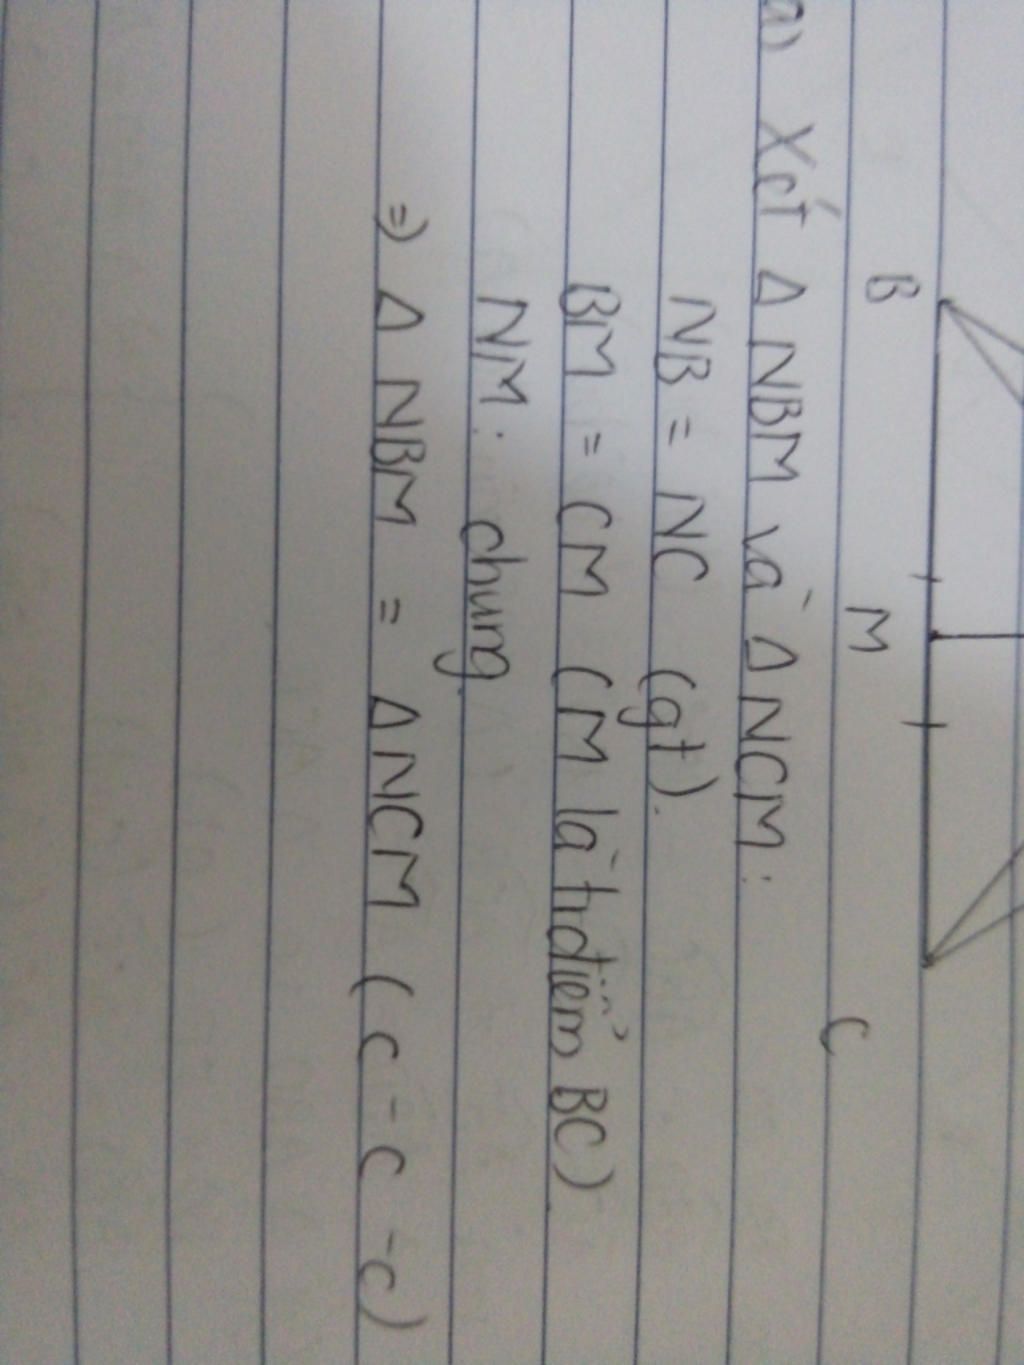 B M C
a) Xét Δ NBM và Δ NCM:
NB = NC (gt).
BM = CM (M là trđiểm BC)
NM: chung
=> Δ NBM = Δ NCM (c - c - c)